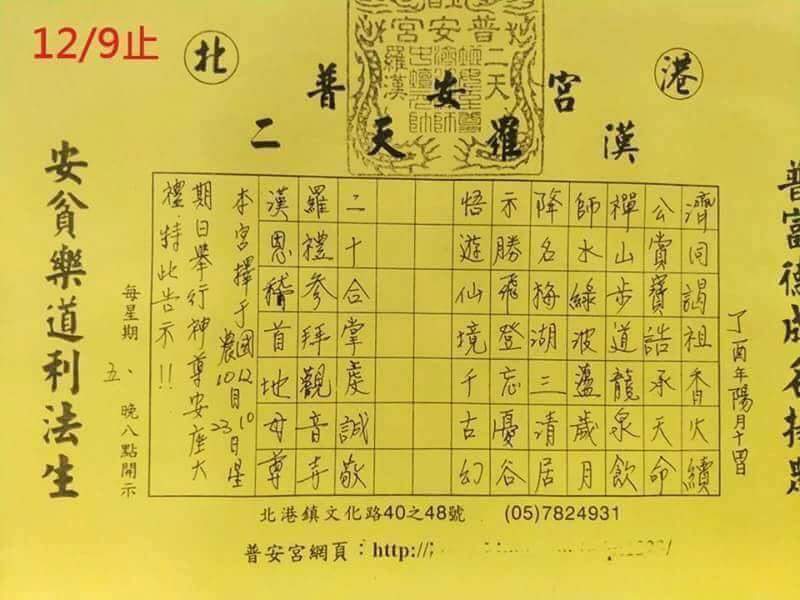 12/9止
北 港
普 安 宮
二 天 羅 漢
普安宮
二天
羅漢
濟同謁祖香火續
公賞寶誥承天命
禪山步道龍泉飲
師水綠波盪歲月
降名梅湖三清居
示勝飛登忘憂谷
悟遊仙境千古幻
二十合掌虔誠敬
羅禮參拜觀音寺
漢恩稽首地母尊
本宮擇于國12月10日星
農10月23
期日舉行神尊安座大
禮.特此告示!!
丁酉年陽月十四日
安貧樂道利法生
每星期五、晚八點開示
北港鎮文化路40之48號 (05)7824931
普安宮網頁：http://